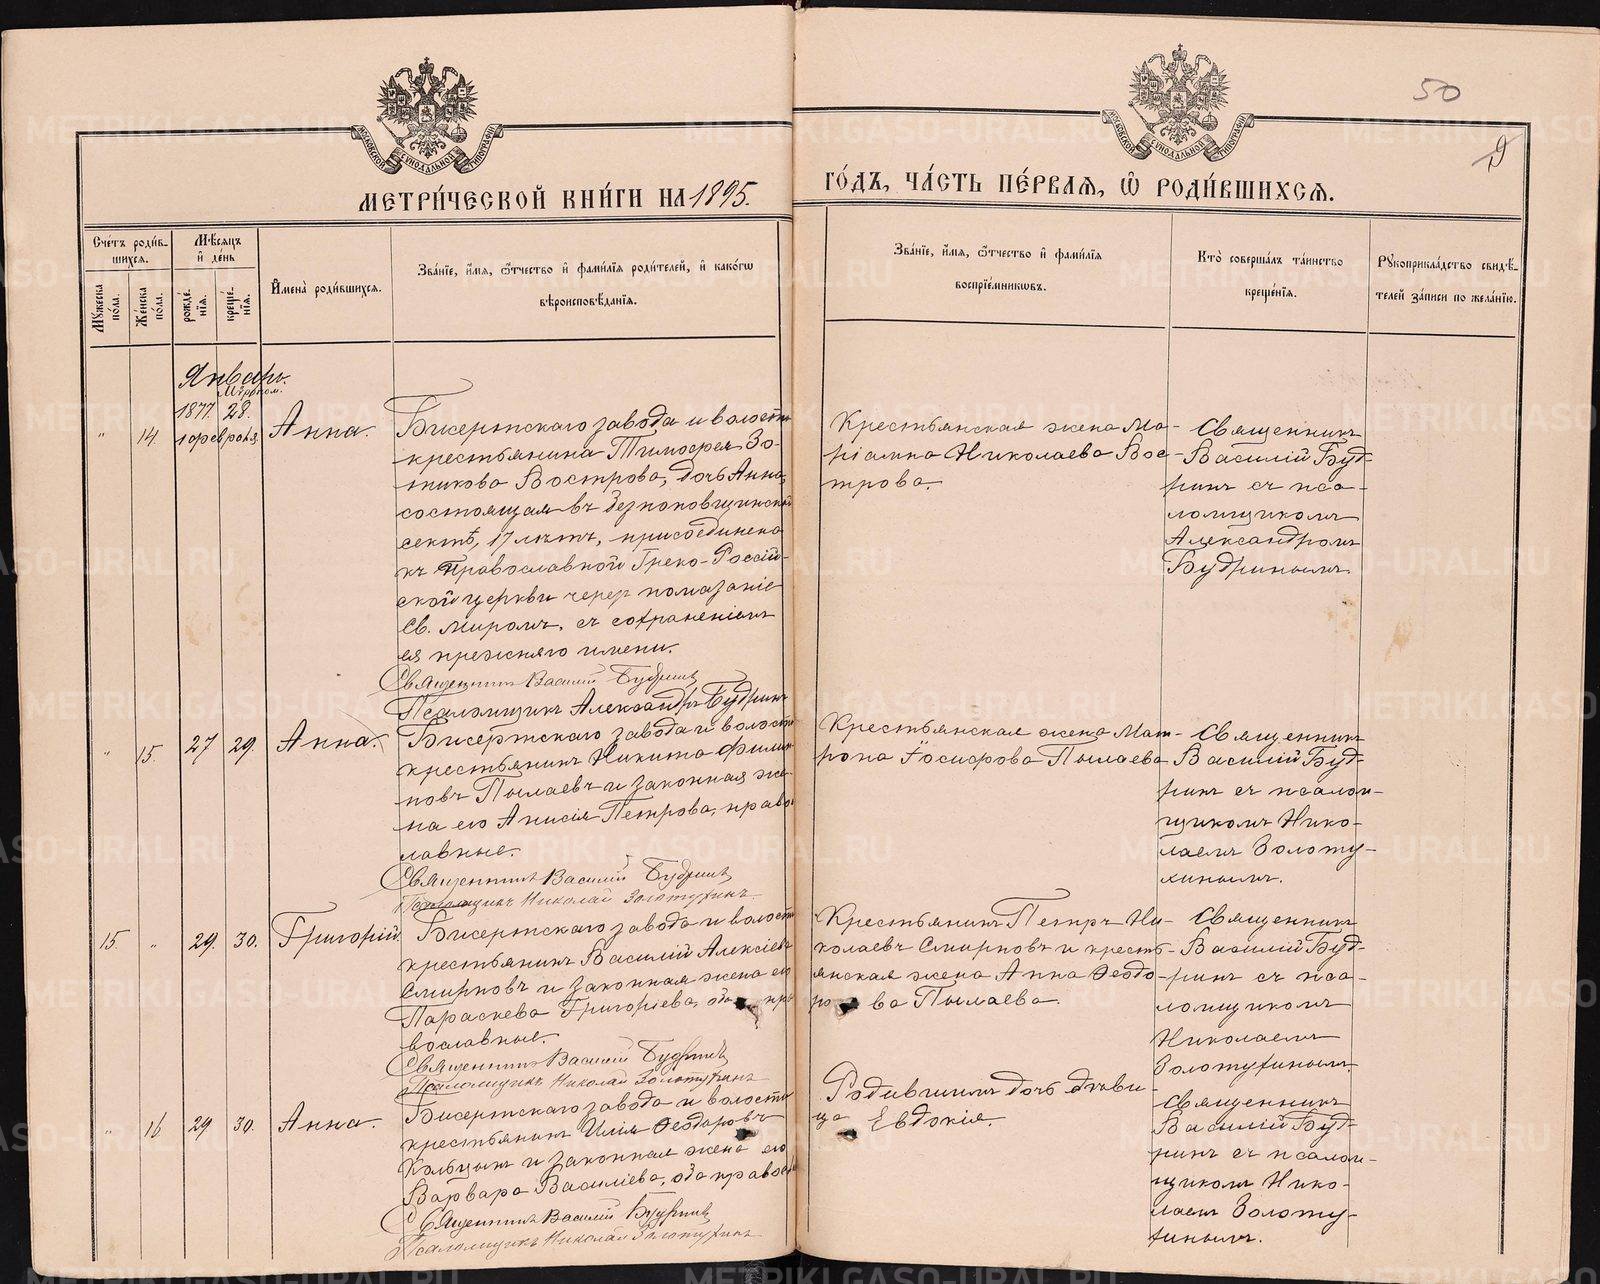 50
9
МОСКОВСКОЙ СѴНОДАЛЬНОЙ ТИПОГРАФІИ
МОСКОВСКОЙ СѴНОДАЛЬНОЙ ТИПОГРАФІИ
МЕТРИ́ЧЕСКОЙ КНИ́ГИ НА 1895.
ГО́ДЪ, ЧА́СТЬ ПЕ́РВАЯ, Ѡ҆ РОДИ́ВШИХСЯ.
Сче́тъ роди́в-
шихся.
Мꙋжеска по́ла.
Же́нска по́ла.
Мѣ́сяцъ и҆ де́нь
рожде́нія.
креще́нія.
И҆мена̀ роди́вшихся.
Зва́ніе, и҆́мя, ѻ҆́тчество и҆ фами́лія роди́телей, и҆ како́гѡ
вѣроисповѣ́данія.
Зва́ніе, и҆́мя, ѻ҆́тчество и҆ фами́лія
воспріе́мникѡвъ.
Кто̀ соверша́лъ та́инство
креще́нія.
Рꙋкоприкла́дство свидѣ́-
телей за́писи по жела́нію.
Январь.
Мѵропом.
1877. 28.
1 февраля
" 14. Анна.
Бисертскаго завода и волости
крестьянина Тимофея Зо-
тикова Вострова, дочь Анна,
состоящая въ безпоповщинской
сектѣ, 17 лѣтъ, присоединена
къ Православной Греко-Россій-
ской церкви чрезъ помазаніе
Св. мѵромъ, съ сохраненіемъ
ея прежняго имени.
Священникъ Василій Будринъ
Псаломщикъ Александръ Будринъ
Крестьянская жена Ма-
ріамна Николаева Вос-
трова.
Священникъ
Василій Буд-
ринъ съ пса-
ломщикомъ
Александромъ
Будринымъ.
" 15. 27 29. Анна.
Бисертскаго завода и волости
крестьянинъ Никита Филип-
повъ Пылаевъ и законная же-
на его Анисія Петрова, право-
славные.
Священникъ Василій Будринъ
Псаломщикъ Николай Золотухинъ
Крестьянская жена Мат-
рона Іосифова Пылаева
Священникъ
Василій Буд-
ринъ съ псалом-
щикомъ Нико-
лаемъ Золоту-
хинымъ.
15. " 29. 30. Григорій.
Бисертскаго завода и волости
крестьянинъ Василій Алексѣевъ
Смирновъ и законная жена его
Параскева Григорьева, оба пра-
вославные.
Священникъ Василій Будринъ
Псаломщикъ Николай Золотухинъ
Крестьянинъ Петръ Ни-
колаевъ Смирновъ и кресть-
янская жена Анна Ѳеодо-
рова Пылаева.
Священникъ
Василій Буд-
ринъ съ пса-
ломщикомъ
Николаемъ
Золотухинымъ
" 16 29 30. Анна.
Бисертскаго завода и волости
крестьянинъ Илія Ѳеодоровъ
и законная жена его
Варвара Василіева, оба правос
Священникъ Василій Будринъ
Псаломщикъ Николай Золотухинъ
Родившимъ дочь дѣви-
ца Евдокія.
Священникъ
Василій Буд-
ринъ съ псалом-
щикомъ Нико-
лаемъ Золоту-
хинымъ.
METRIKI.GASO-URAL.RU